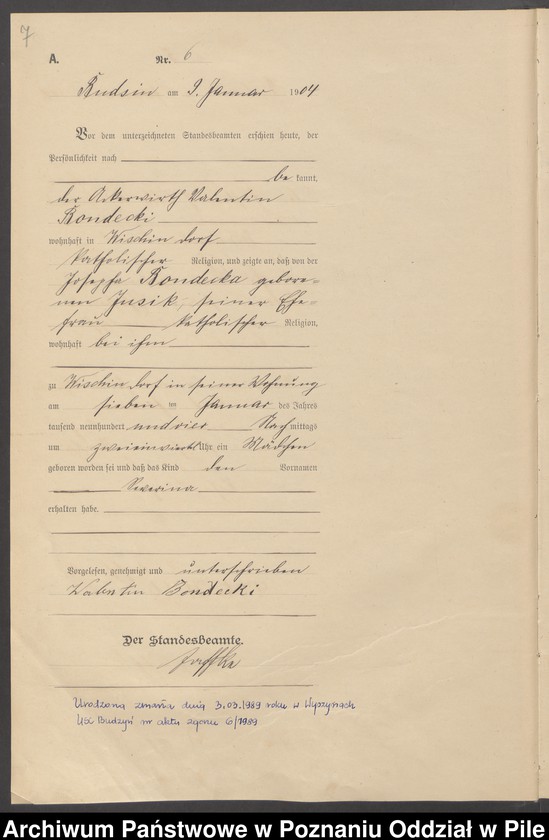 7
A. Nr. 6
Budsin am 9. Januar 1904
Vor dem unterzeichneten Standesbeamten erschien heute, der
Persönlichkeit nach
be kannt,
der Ackerwirth Valentin
Bondecki
wohnhaft in Wischin dorf
katholischer Religion, und zeigte an, daß von der
Josepha Bondecka gebore-
nen Jusik, seiner Ehe-
frau katholischer Religion,
wohnhaft bei ihm
zu Wischin dorf in seiner Wohnung
am sieben ten Januar des Jahres
tausend neunhundert und vier Nach mittags
um zweieinviertel Uhr ein Mädchen
geboren worden sei und daß das Kind den Vornamen
Severina
erhalten habe.
Vorgelesen, genehmigt und unterschrieben
Walentin Bondecki
Der Standesbeamte.
Jaffke
Urodzona zmarła dnia 3.03.1989 roku w Wyszynach
USC Budzyń nr aktu zgonu 6/1989
Archiwum Państwowe w Poznaniu Oddział w Pile